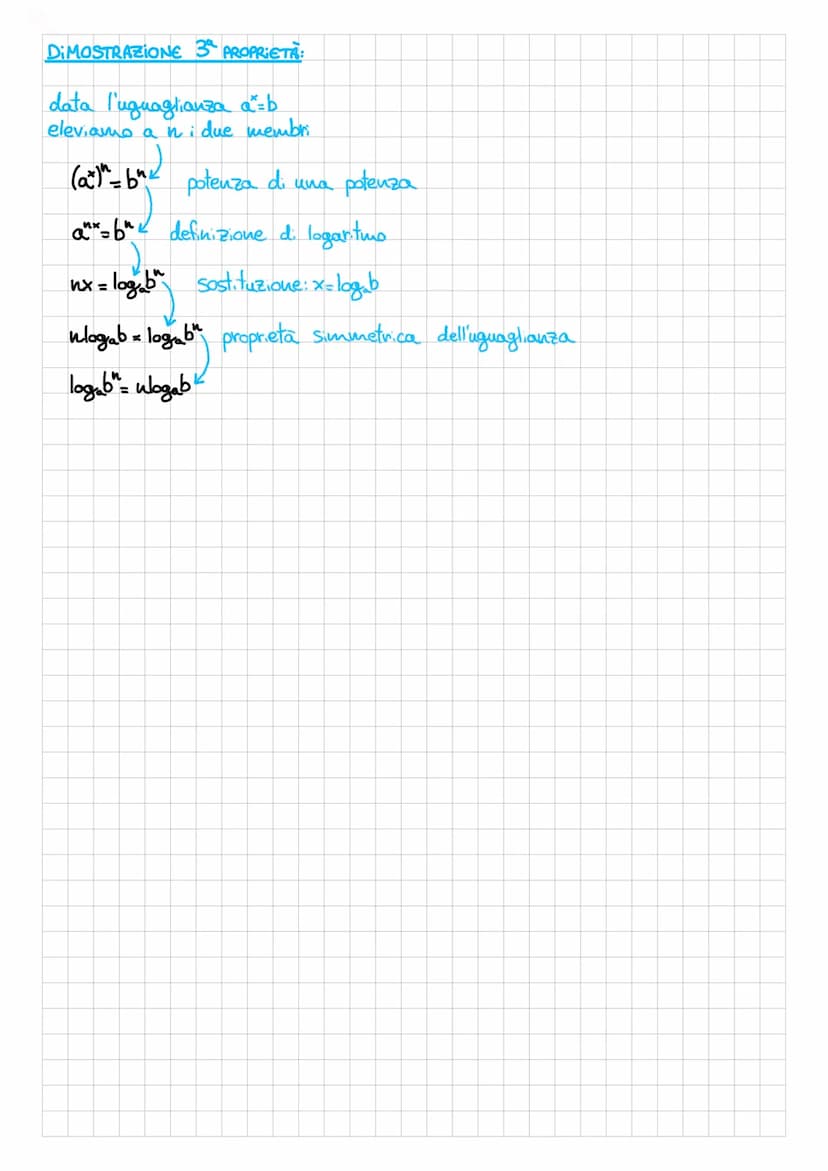 DIMOSTRAZIONE 3ª PROPRIETÀ:
data l'uguaglianza aˣ=b
eleviamo a n i due membri
(aˣ)ⁿ=bⁿ potenza di una potenza
aⁿˣ=bⁿ definizione di logaritmo
nx = logₐbⁿ sostituzione: x=logₐb
nlogₐb = logₐbⁿ proprietà simmetrica dell'uguaglianza
logₐbⁿ= nlogₐb